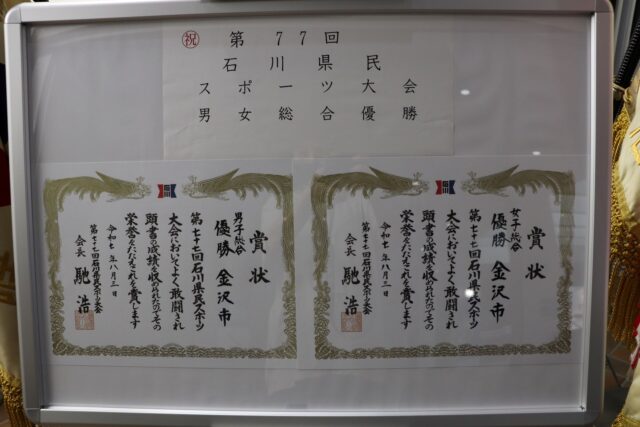 祝 第77回
石川県民
スポーツ大会
男女総合優勝
賞状
女子総合
優勝 金沢市
第七十七回石川県民スポーツ
大会においてよく敢闘され
顕著な成績を収められたのでその
栄誉をたたえこれを賞します
令和七年八月三日
第七十七回石川県民スポーツ大会
会長 馳浩
賞状
男子総合
優勝 金沢市
第七十七回石川県民スポーツ
大会においてよく敢闘され
顕著な成績を収められたのでその
栄誉をたたえこれを賞します
令和七年八月三日
第七十七回石川県民スポーツ大会
会長 馳浩